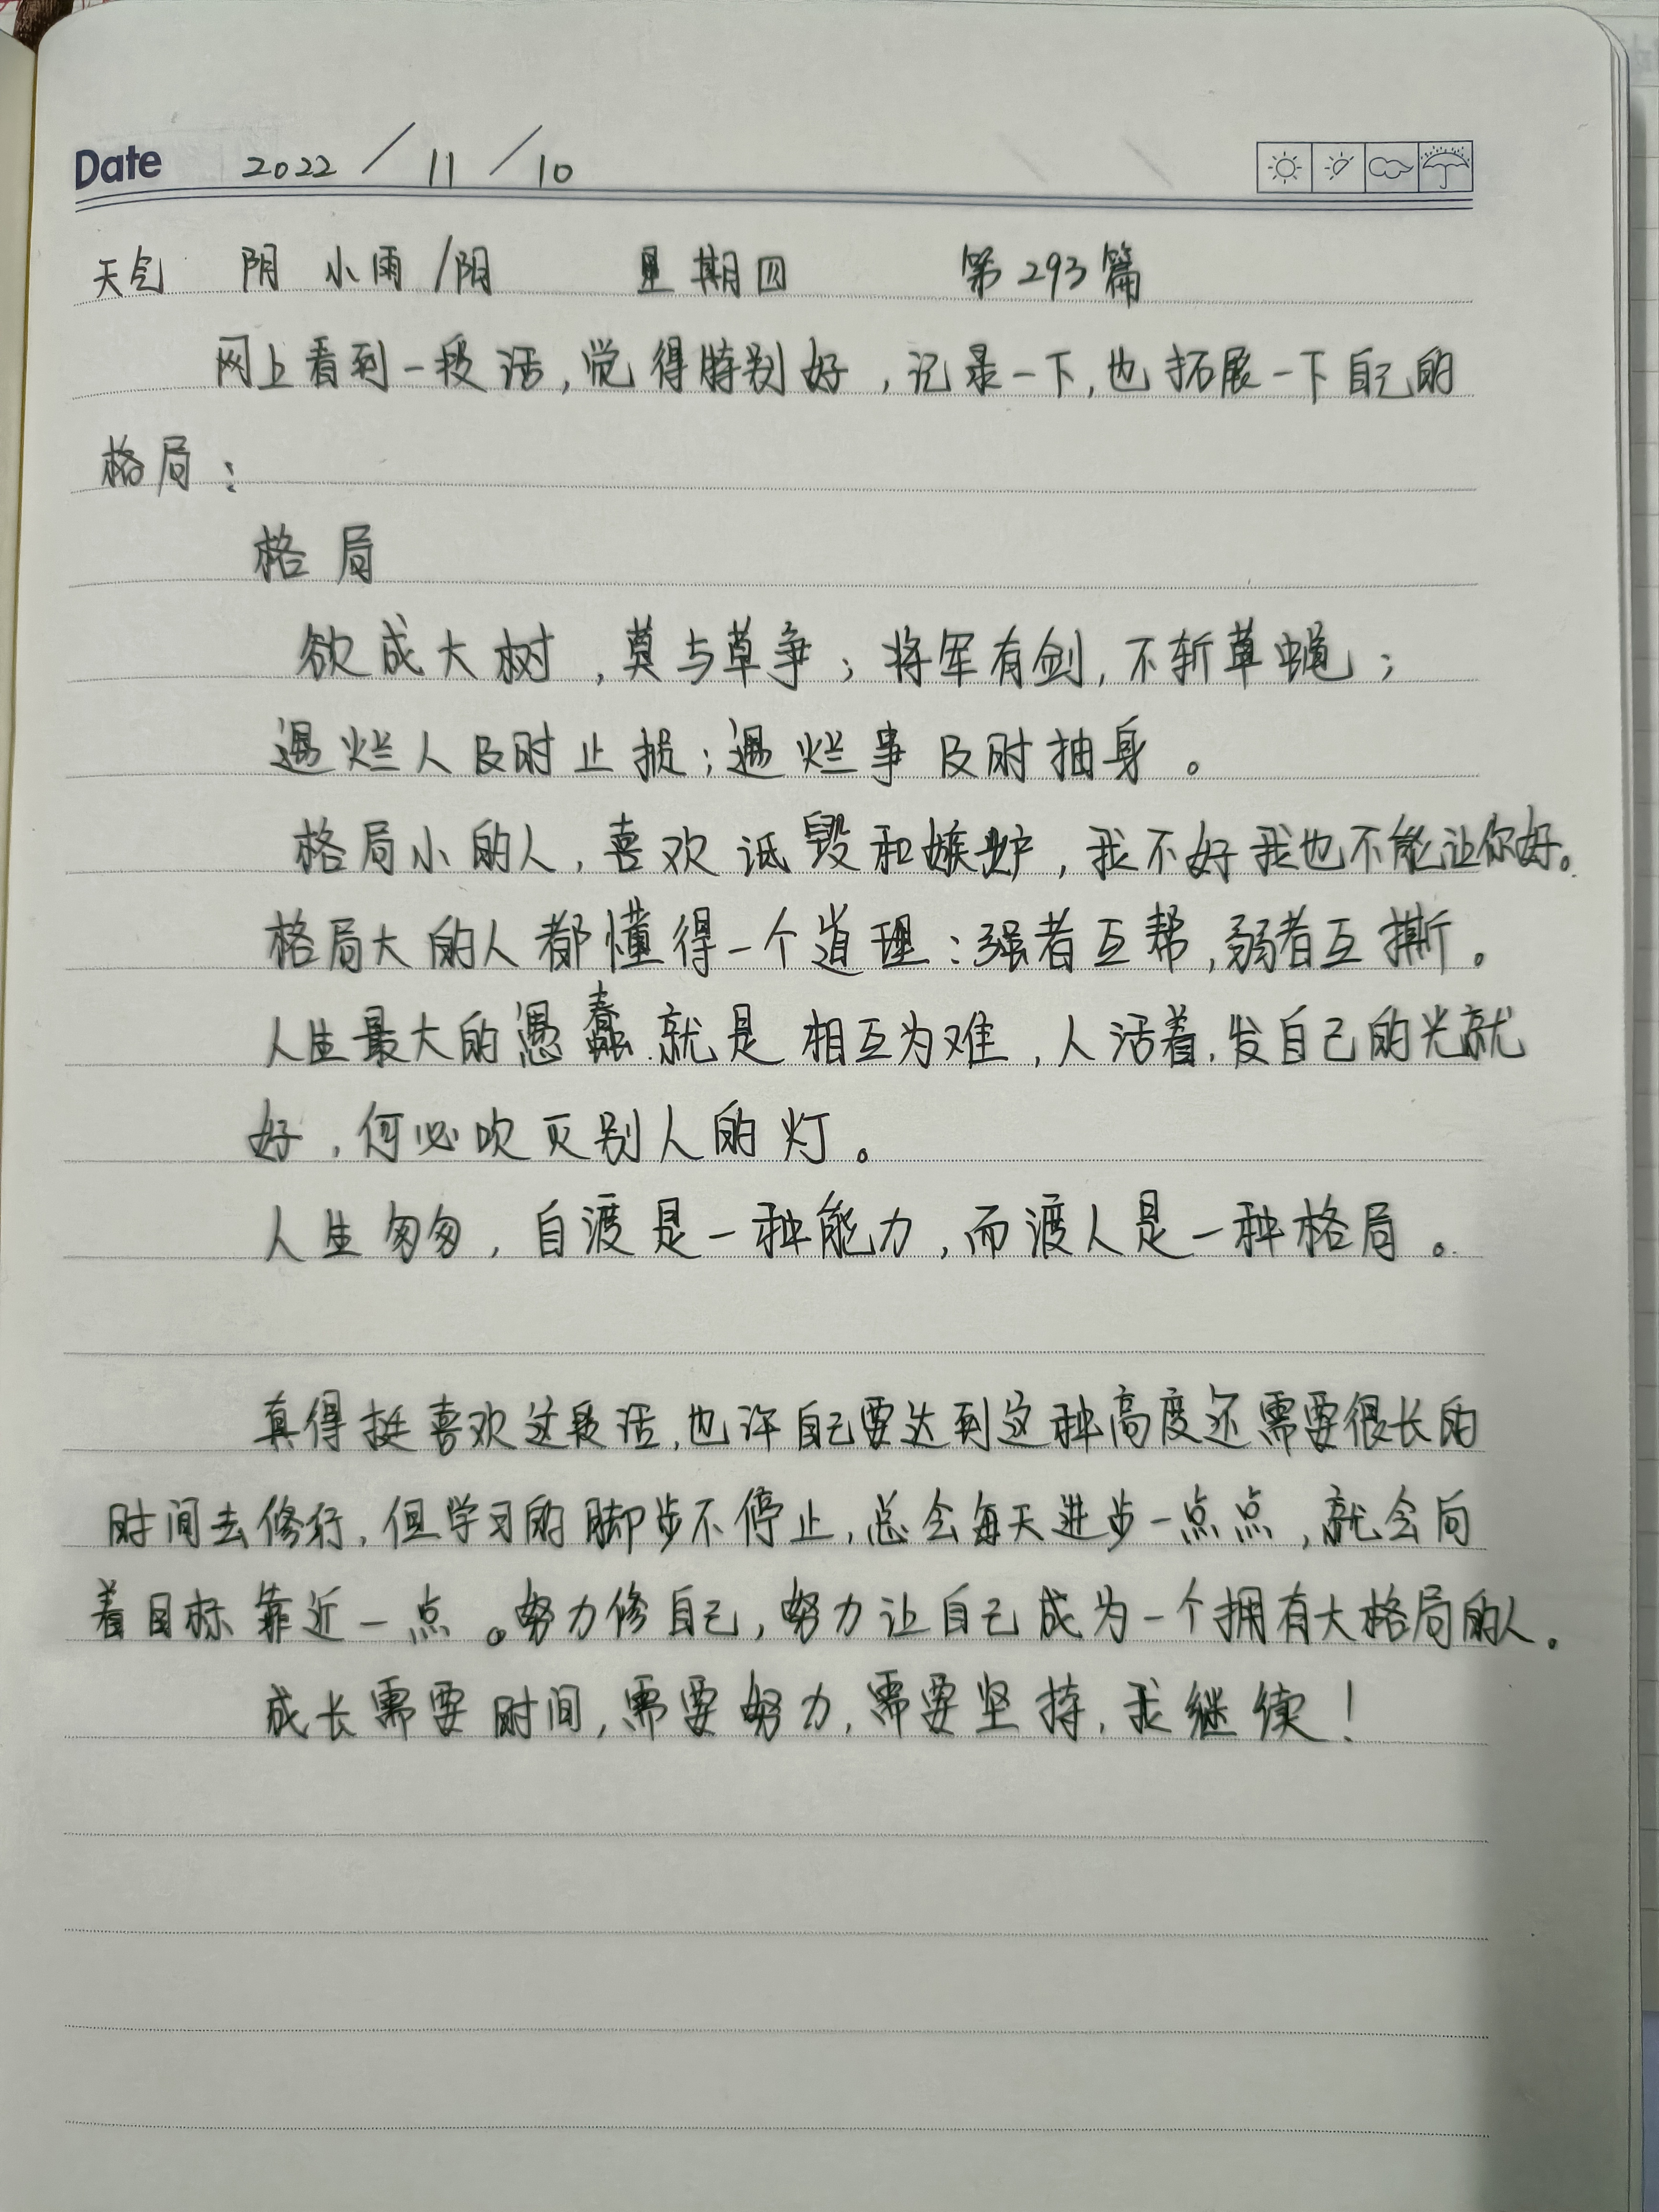 Date 2022 / 11 / 10
天气 阴 小雨 /阴 星期四 第293篇
网上看到一段话,觉得特别好,记录一下,也拓展一下自己的
格局:
格局
欲成大树,莫与草争;将军有剑,不斩草蝇;
遇烂人及时止损;遇烂事及时抽身。
格局小的人,喜欢诋毁和嫉妒,我不好我也不能让你好。
格局大的人都懂得一个道理:强者互帮,弱者互撕。
人生最大的愚蠢就是相互为难,人活着,发自己的光就
好,何必吹灭别人的灯。
人生匆匆,自渡是一种能力,而渡人是一种格局。
真得挺喜欢这段话,也许自己要达到这种高度还需要很长的
时间去修行,但学习的脚步不停止,总会每天进步一点点,就会向
着目标靠近一点。努力修自己,努力让自己成为一个拥有大格局的人。
成长需要时间,需要努力,需要坚持,我继续!